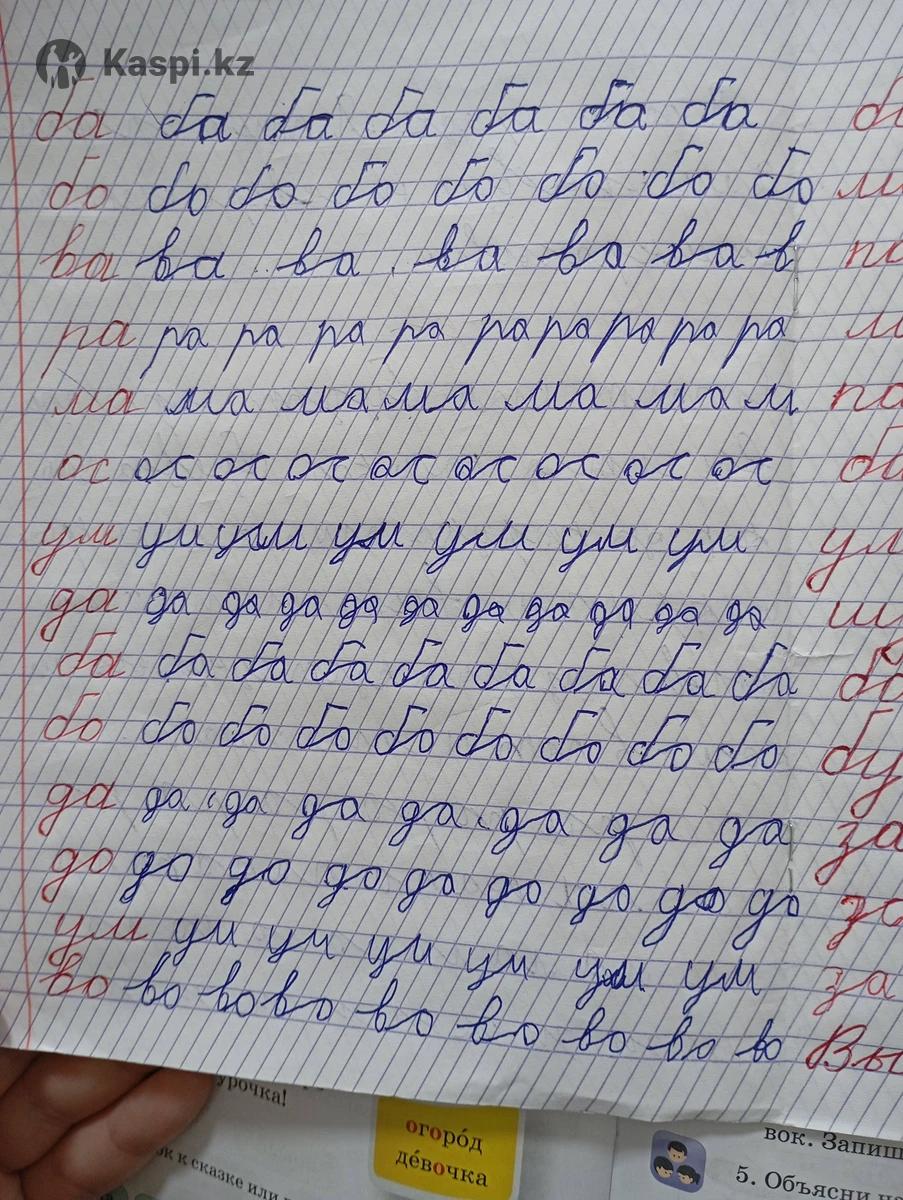 Kaspi.kz
ба ба ба ба ба ба ба
бо бо бо бо бо бо бо бо
ва ва ва ва ва ва в
ра ра ра ра ра ра ра ра ра ра
ма ма ма ма ма ма м
ос ос ос ос ос ос ос ос ос
ум ум ум ум ум ум ум
да да да да да да да да да да
ба ба ба ба ба ба ба ба ба
бо бо бо бо бо бо бо бо бо бу
да да да да да да да да за
до до до до до до до до до
ум уи уи уи уи ум ум за
во во во во во во во во во Вы
урочка!
огоро́д
де́вочка
к сказке или
вок. Запиш
5. Объясни